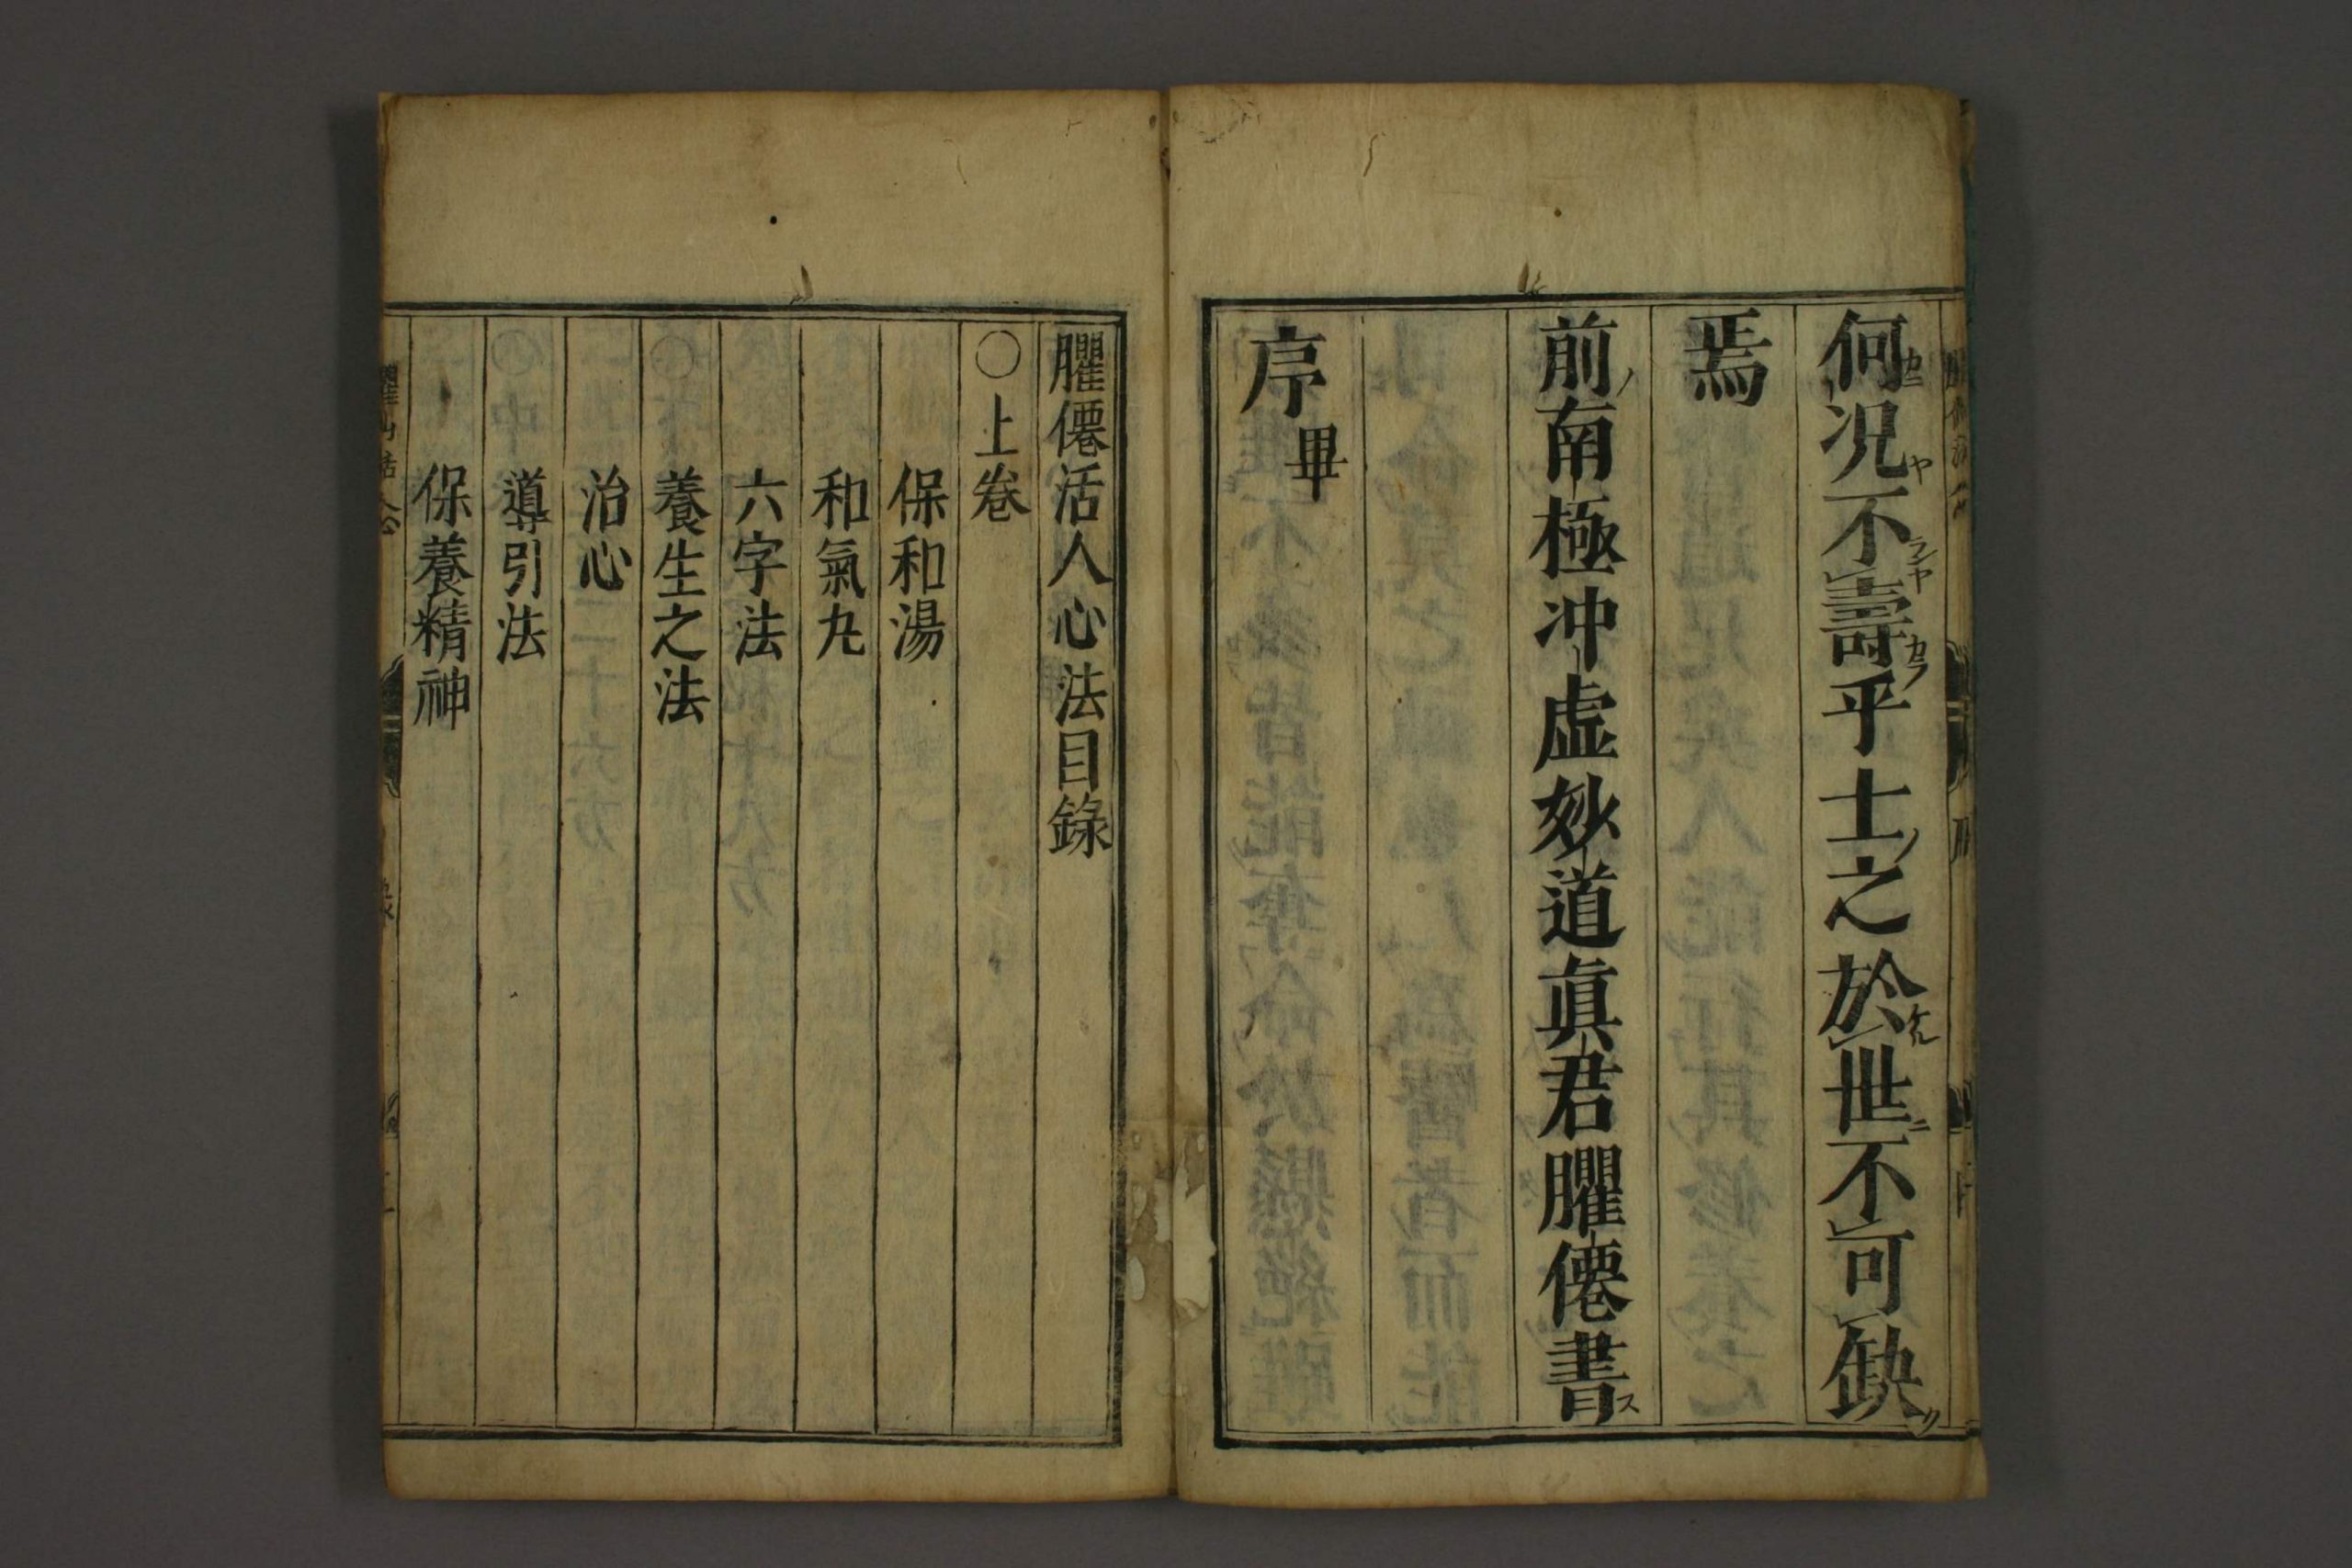 何況不壽乎士之於世不可缺
焉
前南極冲虛妙道眞君臞僊書
序畢
臞僊活人心法目錄
○上卷
保和湯
和氣丸
六字法
養生之法
治心
導引法
保養精神